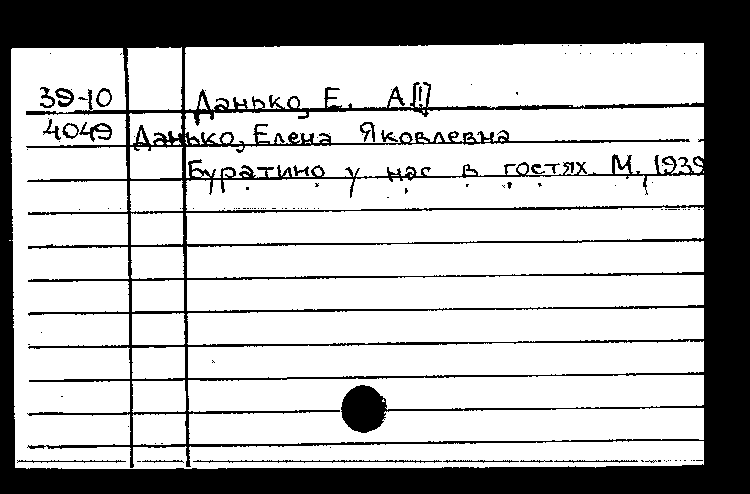 39-10 Данько, Е. А[!]
4049 Данько, Елена Яковлевна
Буратино у нас в гостях. М., 1939